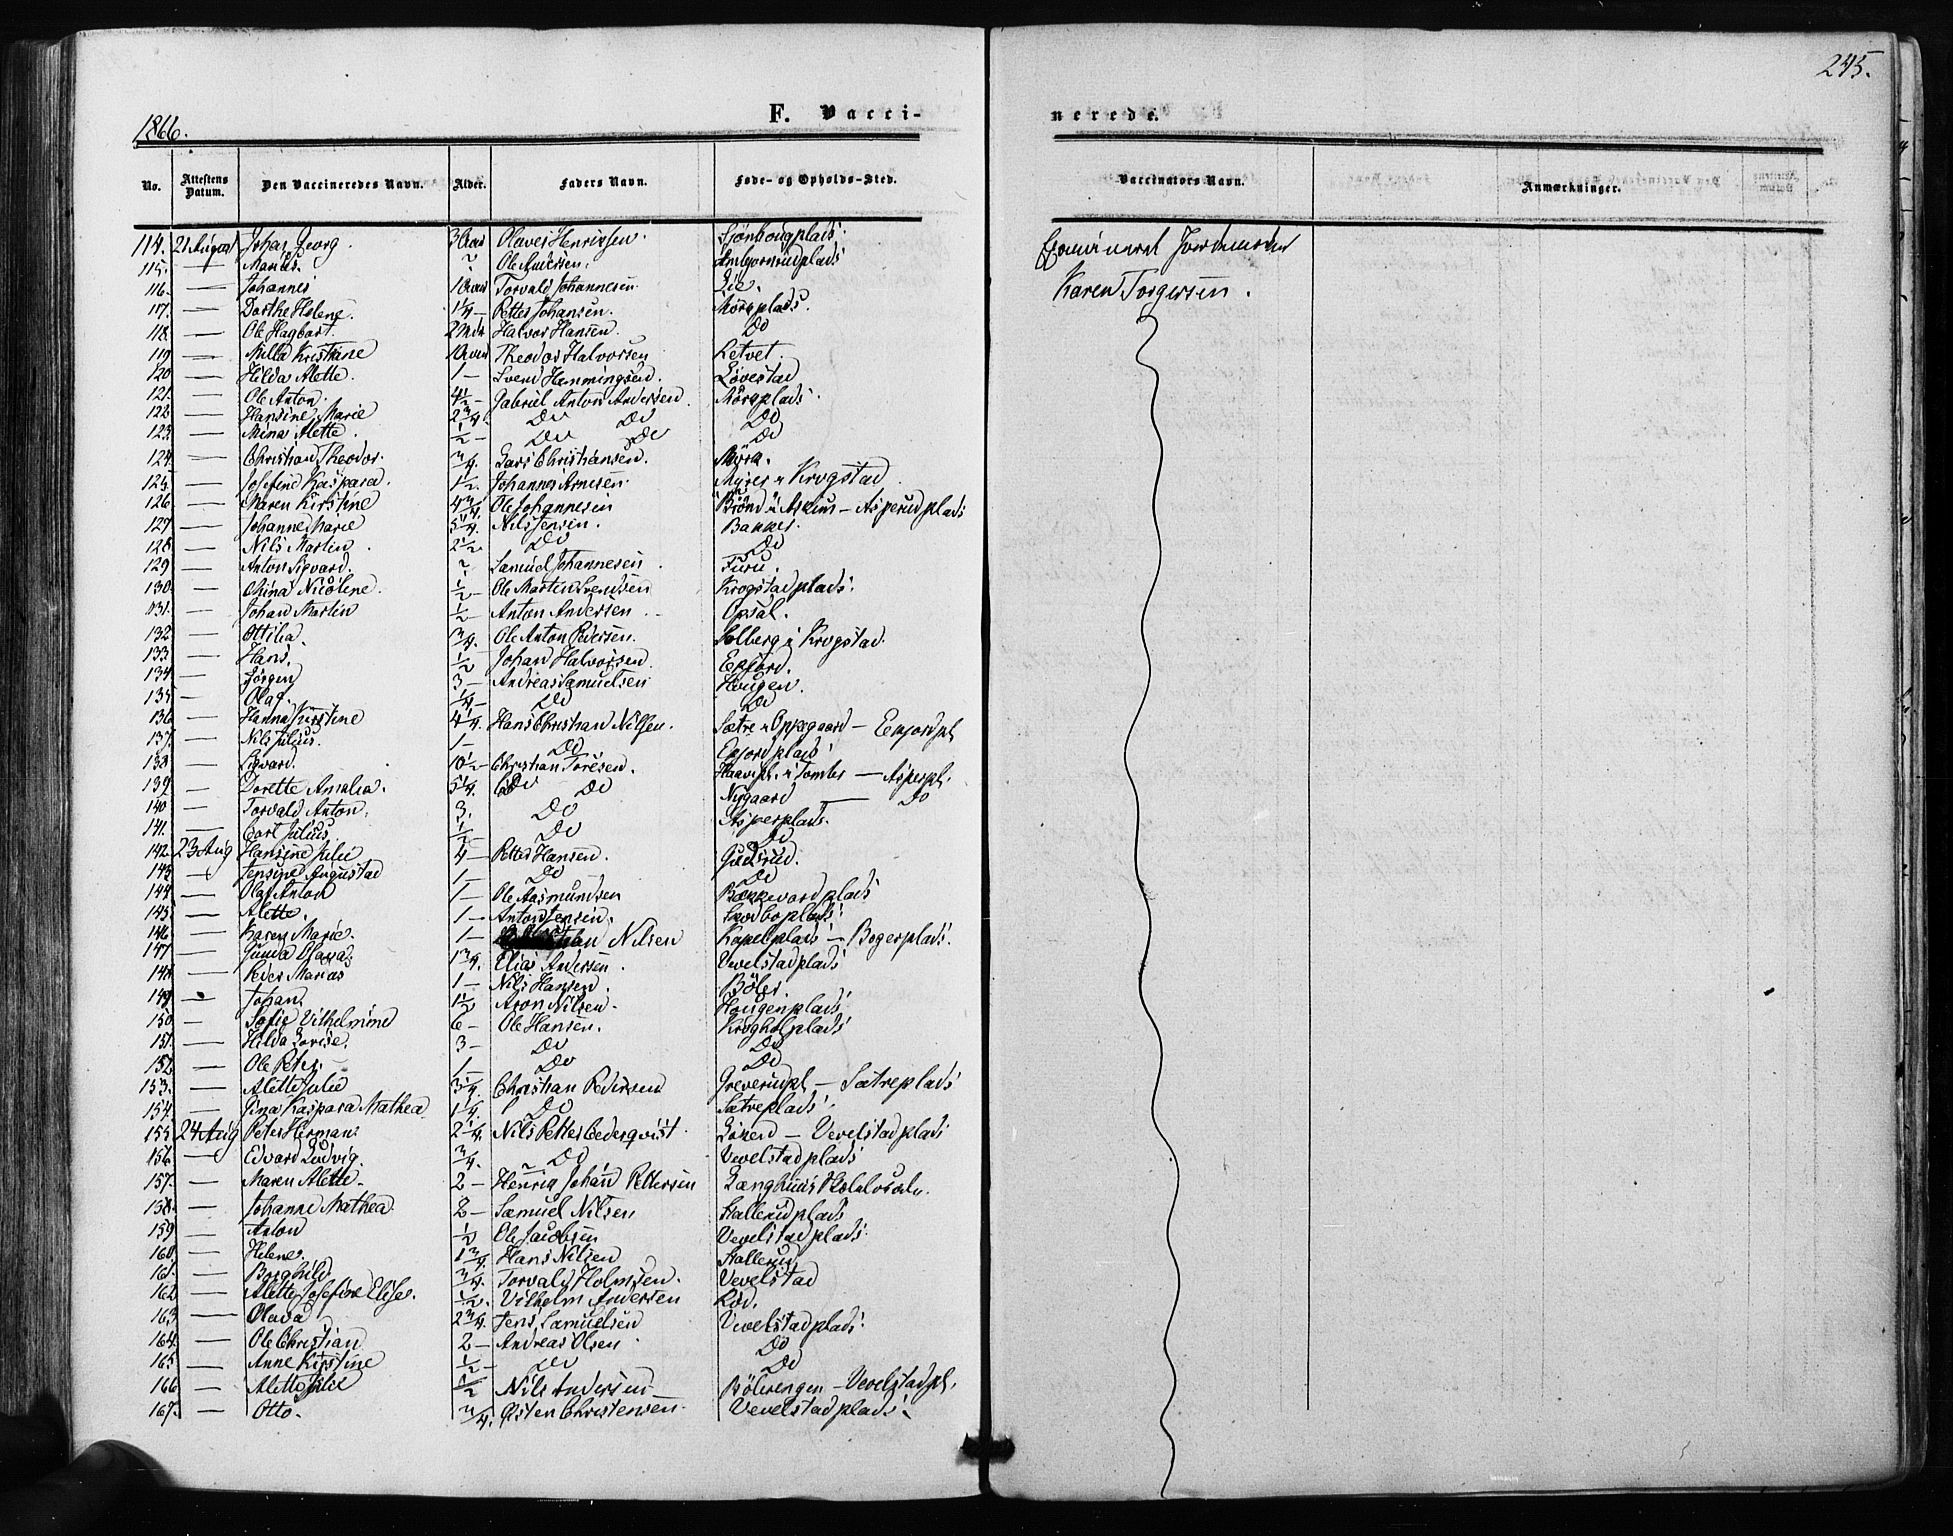 245.
1866.
F. Vacci-
nerede.
No. Attestens Datum. Den Vaccineredes Navn. Alder. Faders Navn. Føde- og Opholds-Sted.
Vaccinators Navn. Anmærkninger.
114. 21 August Johan Georg. 3 Olaves Henriksen.
115. — Ole Andersen.
116. — Johannes 1 Torvald Johannesen Lie.
117. — Dorthe Helene. 1 1/4 — Petter Johansen.
118. — Ole Hagbart. 2 Halvor Hansen. Do
119 — Milla Kristine Theodor Halvorsen Letvet.
120 — Hilda Alette. 1 — Svend Hemmingsen. Lövestad
121. — Ole Anton. 4 1/2 — Gabriel Anton Andersen.
122 — Hansine Marie 2 3/4. Do Do Do
123. — Mina Alette. 1/2 — Do Do Do
124. — Christian Theodor. 3/4. Lars Christiansen. Myra.
125. — Josefine Kaspara. 1 1/2. Johannes Arnesen. Myrer u Krogstad
126. — Maren Kirstine 4 3/4. Ole Johannesen Brönd u Askim — Asperudplads
127. — Johanne Marie 5 1/4. Nils Jensen. Bakker.
128. — Nils Martin. 2 1/2 Do Do
129 — Anton Sigvard. Samuel Johannesen. Furu.
130. — Mina Nicoline. 1/2 — Ole Martin Svendsen Krogstadplads.
131. — Johan Martin 1/2 — Anton Andersen Opsal.
132. — Ottilia. 3/4. Ole Anton Pedersen. Solberg i Krogstad.
133. — Hans. 1/2 Johan Halvorsen. Epjord.
134. — Jörgen 3 — Andreas Samuelsen Hougen.
135 — Olaf. 1/4 — Do Do
136 — Hanna Kirstine 4 1/4. Hans Christian Nilsen. Sætre u Oppegaard — Epjordpl
137. — Nils Julius. 1 — Do Epjordplads
138. — Sigvard. 10 1/2 — Christian Toresen.
139. — Dorette Amalia. 5 1/4. Do Do Nygaard — Do
140 — Torvald Anton. 3. Do Asperplads.
141. — Carl Julius. 1/2 — Do Do
142. 23 Aug Hansine Julie 4 — Petter Hansen. Gudsrud.
143. — Jensine Augustad 1 — Do Do
144. — Olaf Anton 1 — Ole Aasmundsen Bækkevardplads
145. — Alette. 1 — Anton Jensen.
146 — Karen Marie. 1 — Nilsen Kapelplads — Bogerplads.
147 — Gunda Olava. 1 3/4. Elias Andersen. Vevelstadplads
148 — Peder Marias 1 — Nils Hansen. Böler.
149 — Johan. 1 1/2 Aron Nilsen. Hougenplads
150. — Sofie Vilhelmine 6 — Ole Hansen. Krogholplads
151. — Hilda Lovise. 3 — Do Do
152. — Ole Peter. 1 — Do Do
153. — Alette Julie 3 1/4. Christian Pedersen Greverudpl — Sætreplads
154. — Gina Kaspara Mathea 1 1/4. Do Sætreplads.
155. 24 Aug Peter Herman 2 1/4. Nils Petter Cederqvist. Löken — Vevelstadplads
156 — Edvard Ludvig. 3/4. Do Vevelstadplads
157. — Maren Alette. 2 — Henrig Johan Pettersen
158. — Johanne Mathea. 8 — Samuel Nilsen Hallerudplads
159 — Anton 1/2 Ole Jacobsen Vevelstadplads.
160. — Helene. 1 3/4. Hans Nilsen Hallerud
161. — Borghild 3/4. Torvald Holmsen. Vevelstad
162 — Alette Josefine Elise. 1/2. Vilhelm Andersen Röd.
163 — Olava 2 3/4. Jens Samuelsen Vevelstadplads.
164. — Ole Christian 2 — Andreas Olsen. Do
165 — Anne Kirstine 1/2 — Do Do
166 — Alette Julie 1/2 Nils Andersen Bölerengen — Vevelstadpl.
167. — Otto. 3/4. Östen Christensen. Vevelstadplads.
Examineret Jordemoder
Karen Torgersen.